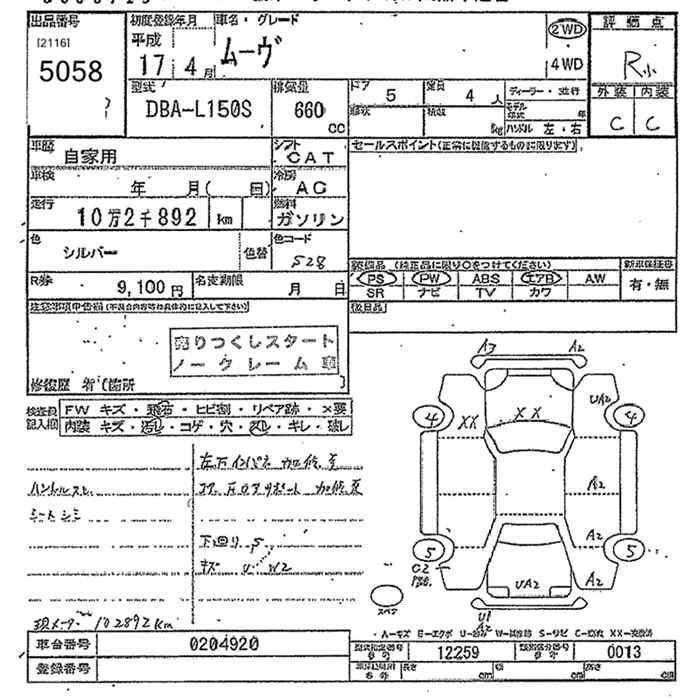 出品番号
[2116]
5058
初度登録年月
平成
17年4月
車名・グレード
ムーヴ
2WD
4WD
評価点
R小
外装 内装
C C
型式
DBA-L150S
排気量
660
CC
ドア
5
形状
定員
4人
積載
kg
ディーラー・並行
モデル年式 年
ハンドル 左・右
車歴
自家用
シフト
CAT
車検
年 月( 回)
冷房
AC
走行
10万2千892 km
燃料
ガソリン
色
シルバー
色替
色コード
S28
R券
9,100円
名変期限
月 日
セールスポイント(正常に機能するものに限ります)
装備品 (純正品に限り○をつけてください)
PS PW ABS エアB AW
SR ナビ TV カワ
新車保証書
有・無
後日品
注意事項申告欄(不具合内容等は具体的に記入して下さい)
売りつくしスタート
ノークレーム車
修復歴 有(箇所 )
検査員記入欄
FW キズ・飛石・ヒビ割・リペア跡・×要
内装 キズ・汚れ・コゲ・穴・スレ・キレ・破レ
ハンドルスレ
シートシミ
下回りS
キズ U W2
現メーター 102892km
A3 A2
4 XX XX UA2 4
A2
5 A2 5
C2
A2
UA2
スペア
U1
A2
車台番号
0204920
登録番号
型式指定番号
12259
類別区分番号
0013
長さ cm 幅 cm 高さ cm